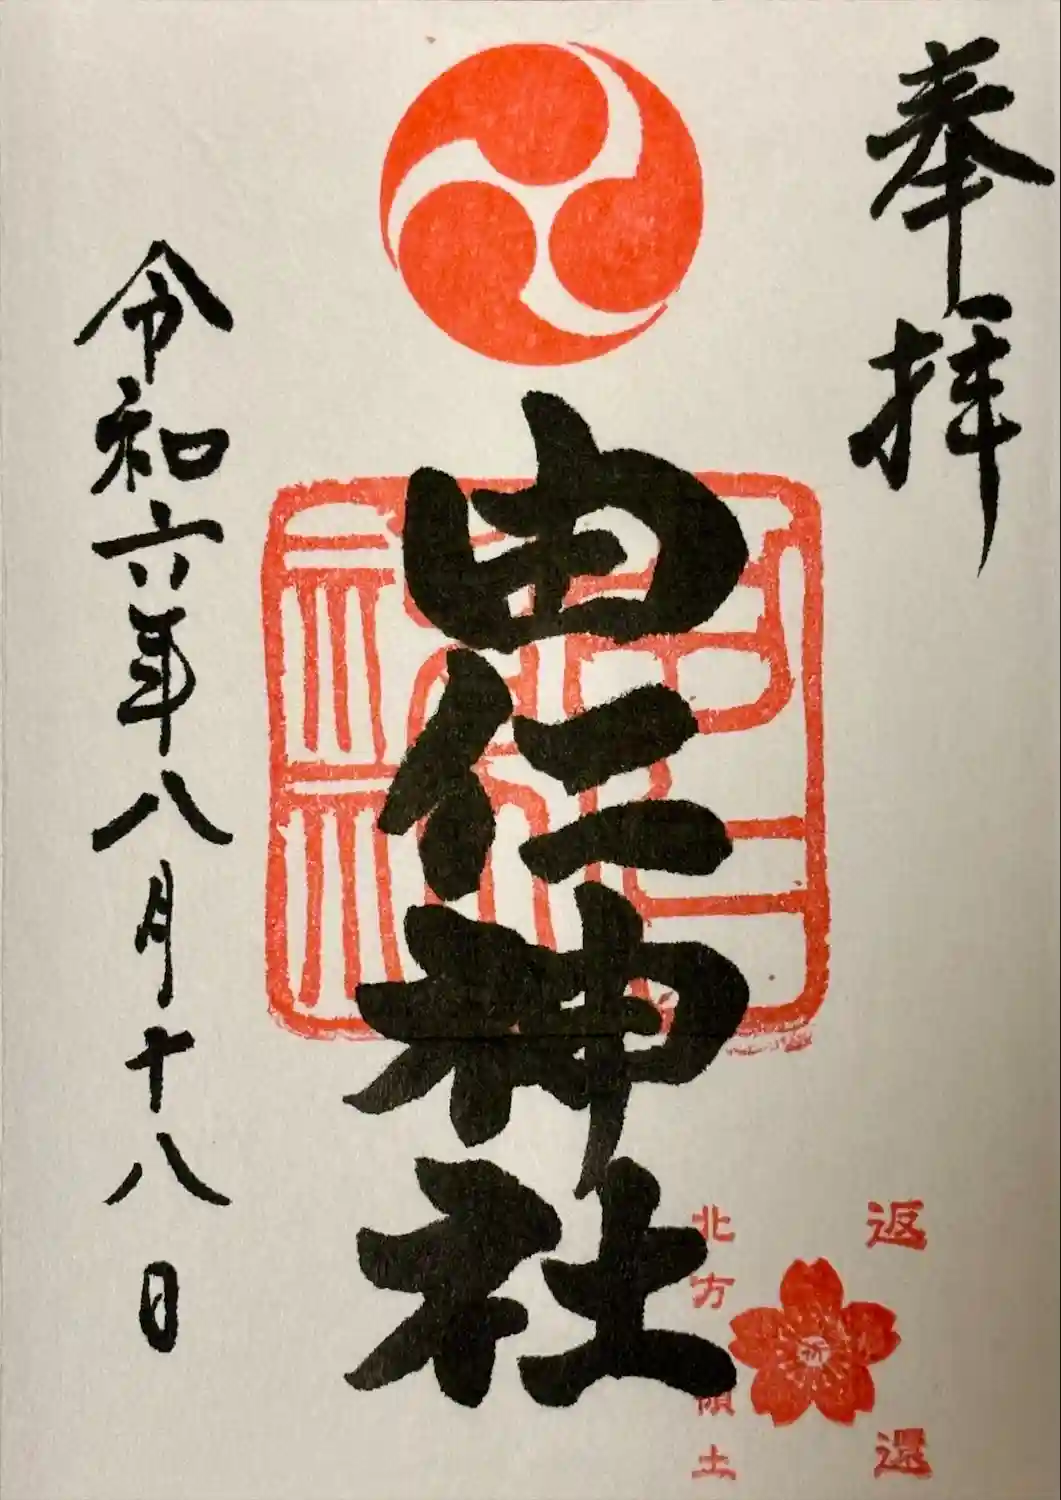 奉拝
由仁神社
令和六年八月十八日
返還
祈
北方領土